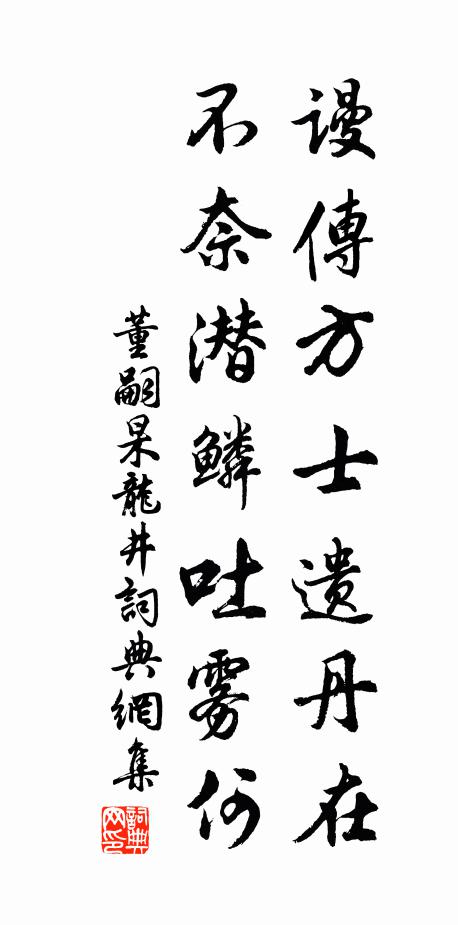 謾傳方士遺丹在
不奈潛鱗吐雾何
董嗣杲龍井詞典網集
詞典網印